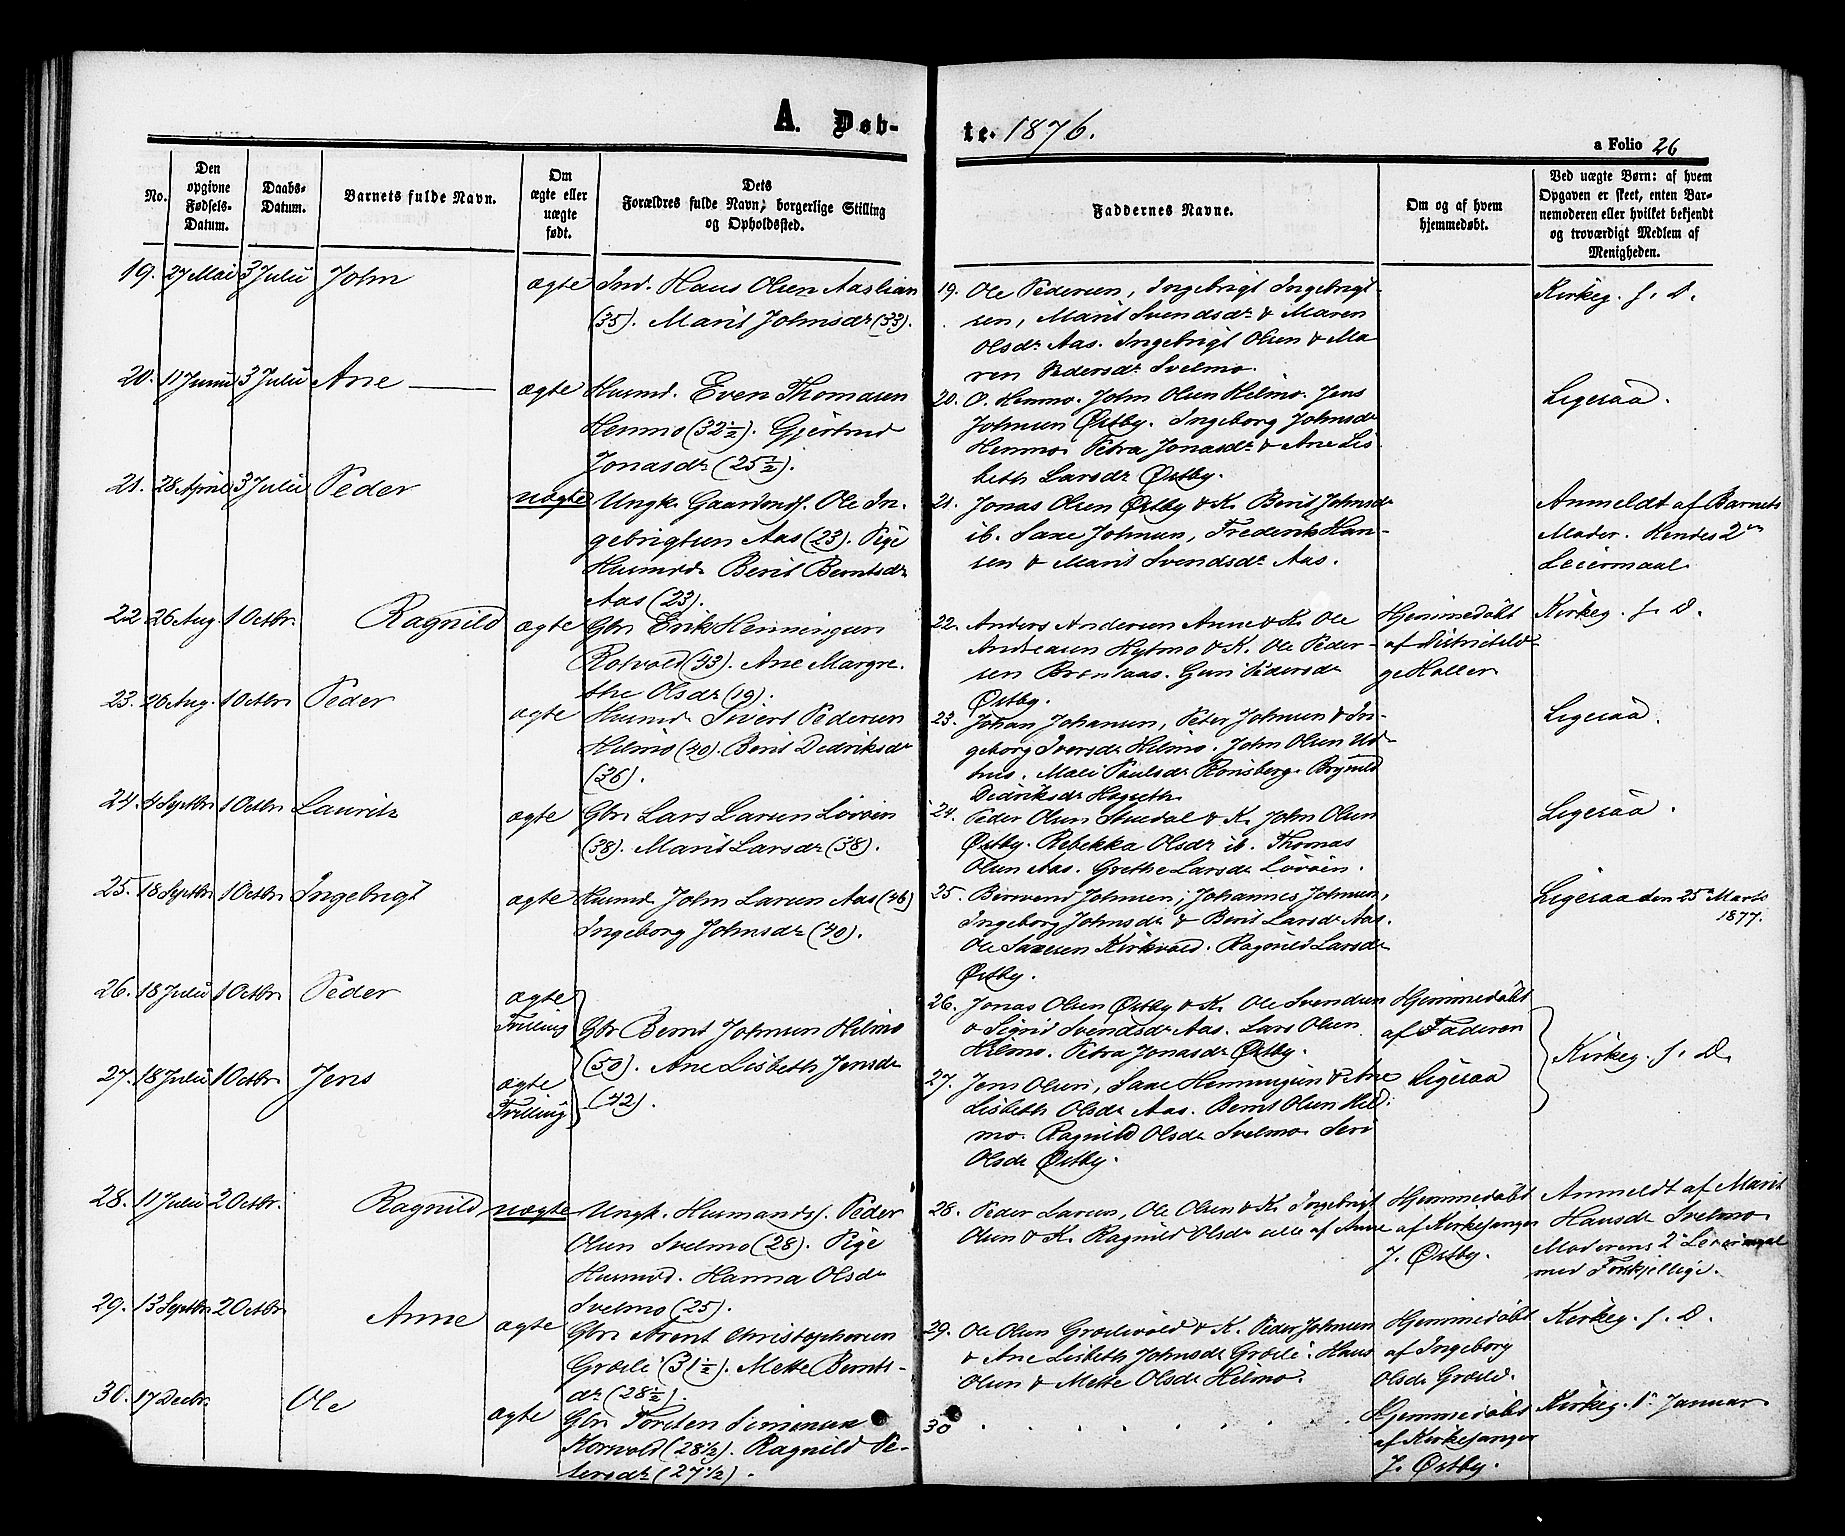 A. Døb-
te. 1876.
a Folio 26
No.
Den opgivne Fødsels-Datum.
Daabs-Datum.
Barnets fulde Navn.
Om ægte eller uægte født.
Dets Forældres fulde Navn, borgerlige Stilling og Opholdssted.
Faddernes Navne.
Om og af hvem hjemmedøbt.
Ved uægte Børn: af hvem Opgaven er skeet, enten Barnemoderen eller hvilket bekjendt og troværdigt Medlem af Menigheden.
19. 27 Mai 3 Julii John ægte Ind. Hans Olsen Aaslian
(35). Marit Johnsdr (33).
19. Ole Pedersen, Ingebrigt Ingebrigt-
sen, Marit Svendsdr & Maren
Olsdr Aas. Ingebrigt Olsen & Ma
ren Pedersdr Svelmo.
Kirkeg. f. D.
20. 11 Junii 3 Julii Ane ægte Husmd. Even Thomasen
Henmo (32½). Gjertrud
Jonasdr (25½).
20. O. Henmo. John Olsen Hilmo. Jens
Johnsen Østby. Ingeborg Johnsdr
Henmo. Petra Jonasdr & Ane Lis-
beth Larsdr Østby.
Ligesaa.
21. 28 April 3 Julii Peder uægte Ungk. Gaardmds. Ole In-
gebrigtsen Aas (23). Pige
Husmd Berit Berntsdr
Aas (23).
21. Jonas Olsen Østby & K. Berit Johnsdr
ib. Saxe Johnsen, Frederik Han-
sen & Marit Svendsdr Aas.
Anmeldt af Barnets
Moder. Hendes 2det
Leiermaal
22. 26 Aug. 1 Octbr. Ragnild ægte Gbr. Erik Henningsen
Rotvold (33). Ane Margre-
the Olsdr (19).
22. Anders Andersen Anne & K. Ole
Andreasen Hytmo & K. Ole Peder-
sen Brenaas. Guri Pedersdr
Østby.
Hjemmedøbt
af Distriktslæ-
ge Høller
Kirkeg. f. D.
23. 26 Aug. 1 Octbr Peder ægte Husmd. Sivert Pedersen
Hilmo (40). Berit Dedriksdr
(36).
23. Johan Johansen, Peter Johnsen & In-
geborg Iversdr Hilmo. John Olsen Ud-
hus. Mali Paulsdr Rønsberg. Brynild
Didriksdr
Ligesaa.
24. 4 Septbr 1 Octbr Lauritz ægte Gbr. Lars Larsen Løvøen
(38). Marit Larsdr (38).
24. Peder Olsen Stuedal & K. John Olsen
Østby. Rebekka Olsdr ib. Thomas
Olsen Aas. Grethe Larsdr Løvøen.
Ligesaa.
25. 18 Septbr 1 Octbr. Ingebrigt ægte Husmd. John Larsen Aas (46)
Ingeborg Johnsdr (40).
25. Bersvend Johnsen, Johannes Johnsen,
Ingeborg Johnsdr & Berit Larsdr Aas.
Ole Saxesen Kirkvold. Ragnild Larsdr
Østby.
Ligesaa den 25 Marts
1877.
26. 18 Julii 1 Octbr. Peder ægte
Trilling
Gbr Bernt Johnsen Hilmo
(50). Ane Lisbeth Jensdr
(42).
26. Jonas Olsen Østby & K. Ole Svendsen
& Sigrid Svendsdr Aas. Lars Olsen
Hilmo. Petra Jonasdr Østby.
Hjemmedøbt
af Faderen
Kirkeg. f. D.
27. 18 Julii 1 Octbr. Jens ægte
Trilling
27. Jens Olsen, Saxe Henningsen & Ane
Lisbeth Olsdr Aas. Bernt Olsen Hil-
mo. Ragnild Olsdr Svelmo. Seri
Olsdr Østby.
Ligesaa
28. 11 Julii 2 Octbr. Ragnild uægte Ungk. Husmands. Peder
Olsen Svelmo (28). Pige
Husmd. Hanna Olsdr
Svelmo (25).
28. Peder Larsen, Ole Olsen & K. Ingebrigt
Olsen & K. Ragnild Olsdr alle af Anne
Hjemmedøbt
af Kirkesanger
J. Østby.
Anmeldt af Marit
Hansdr Svelmo
Moderens 2t Leiermaal
med Forskjellige.
29. 13 Septbr 2 Octbr. Anne ægte Gbr. Arent Christophersen
Græsli (31½). Mette Bernts-
dr (28½).
29. Ole Olsen Grædevold & K. Peder Johnsen
& Ane Lisbeth Johnsdr Græsli. Hans
Olsen & Mette Olsdr Hilmo.
Hjemmedøbt
af Ingeborg
Olsdr Græsli.
Kirkeg. f. D.
30. 17 Decbr. Ole ægte Gbr. Torsten Simonsen
Kornvold (28½). Ragnild Pe-
tersdr (27½).
30
Hjemmedøbt
af Kirkesanger
J. Østby.
Kirkeg. 1t Januar